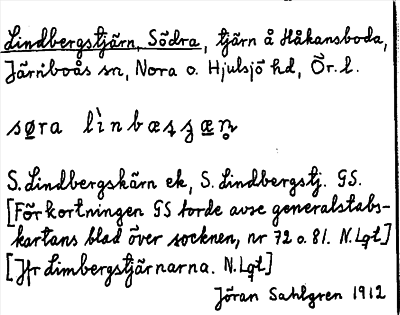 Lindbergstjärn, Södra, tjärn å Håkansboda,
Järnboås sn, Nora o. Hjulsjö hd, Ör. l.
S. Lindbergskärn ek, S. Lindbergstj. GS.
[Förkortningen GS torde avse generalstabs-
kartans blad över socknen, nr 72 o. 81. N.Lgt]
[Jfr Limbergstjärnarna. N.Lgt]
Jöran Sahlgren 1912